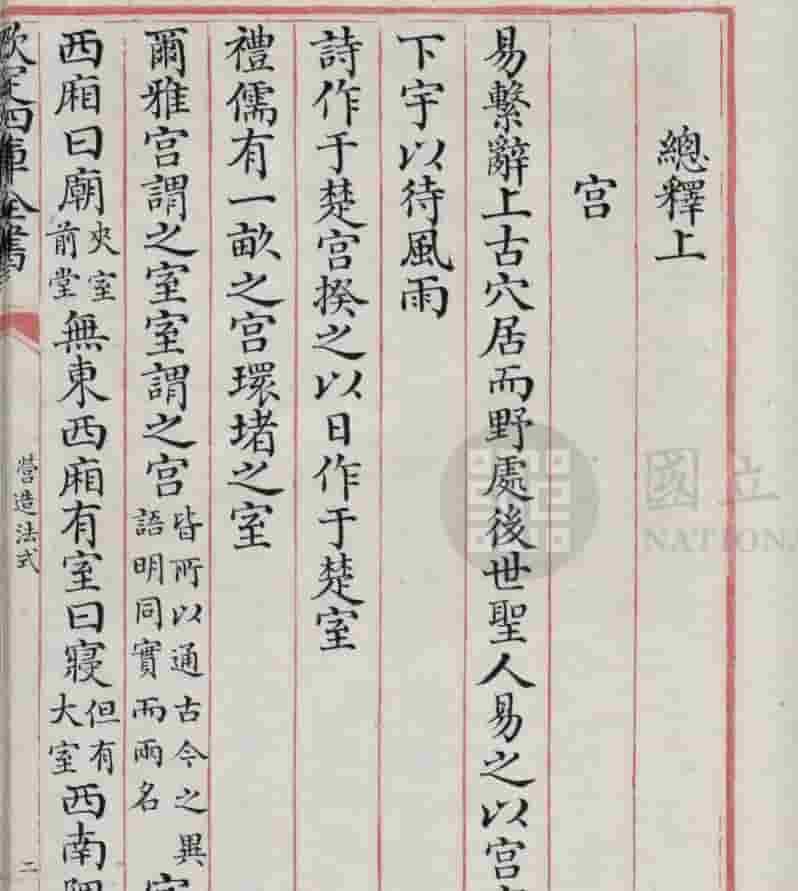 總釋上
宮
易繫辭上古穴居而野處後世聖人易之以宮
下宇以待風雨
詩作于楚宮揆之以日作于楚室
禮儒有一畝之宮環堵之室
爾雅宮謂之室室謂之宮皆所以通古今之異語明同實而兩名
西廂曰廟夾室前堂無東西廂有室曰寢但有大室西南隅
欽定四庫全書
營造法式
二
國立
NATION